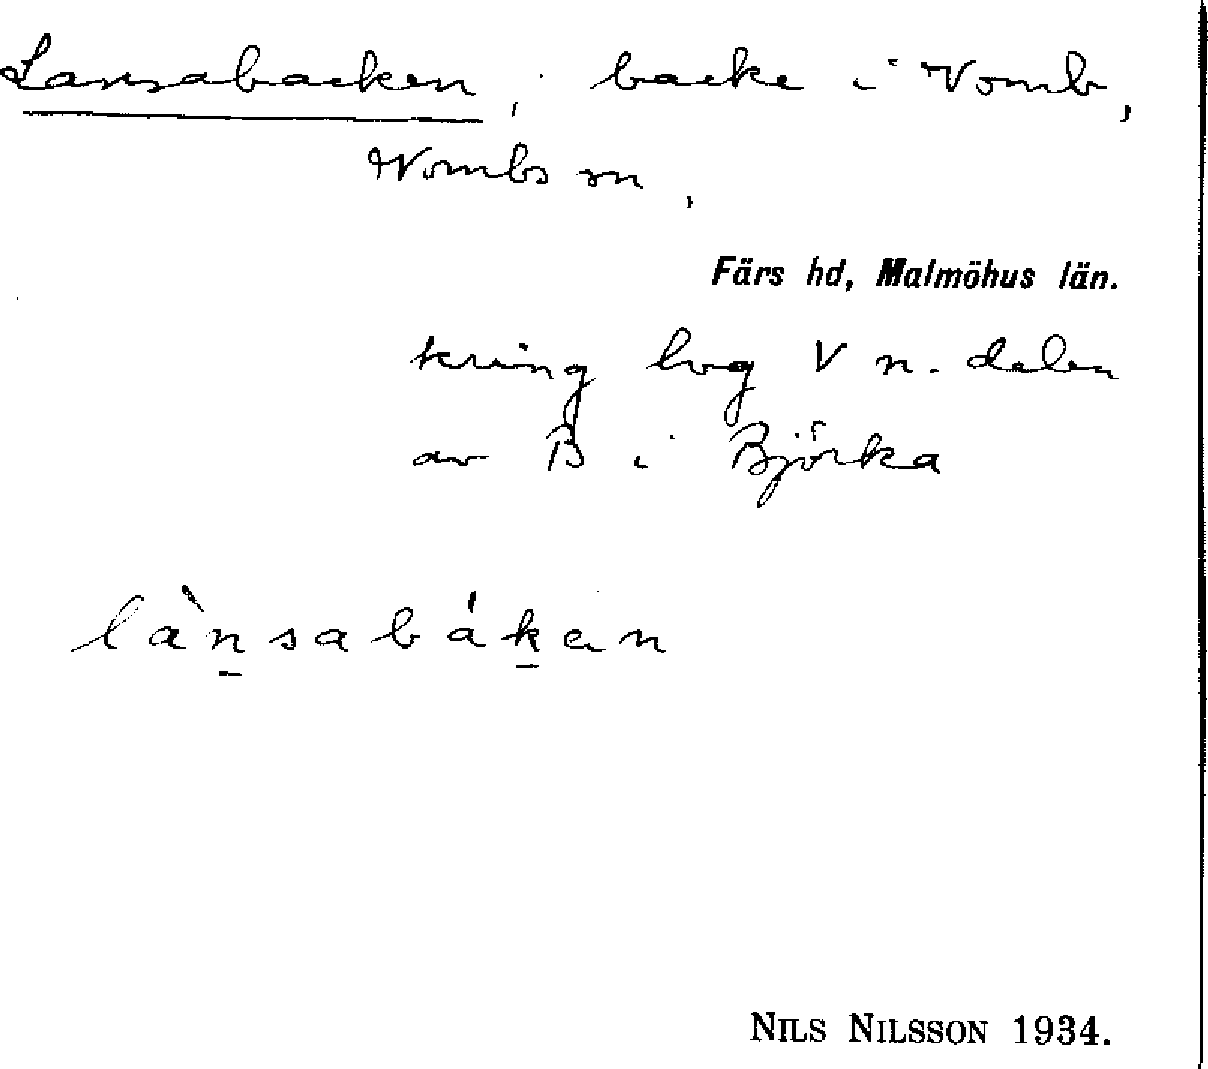 Lansabacken, backe i Vomb,
Vombs sn,
Färs hd, Malmöhus län.
kring hög V n. delen
av B i Björka
lànsabákan
NILS NILSSON 1934.